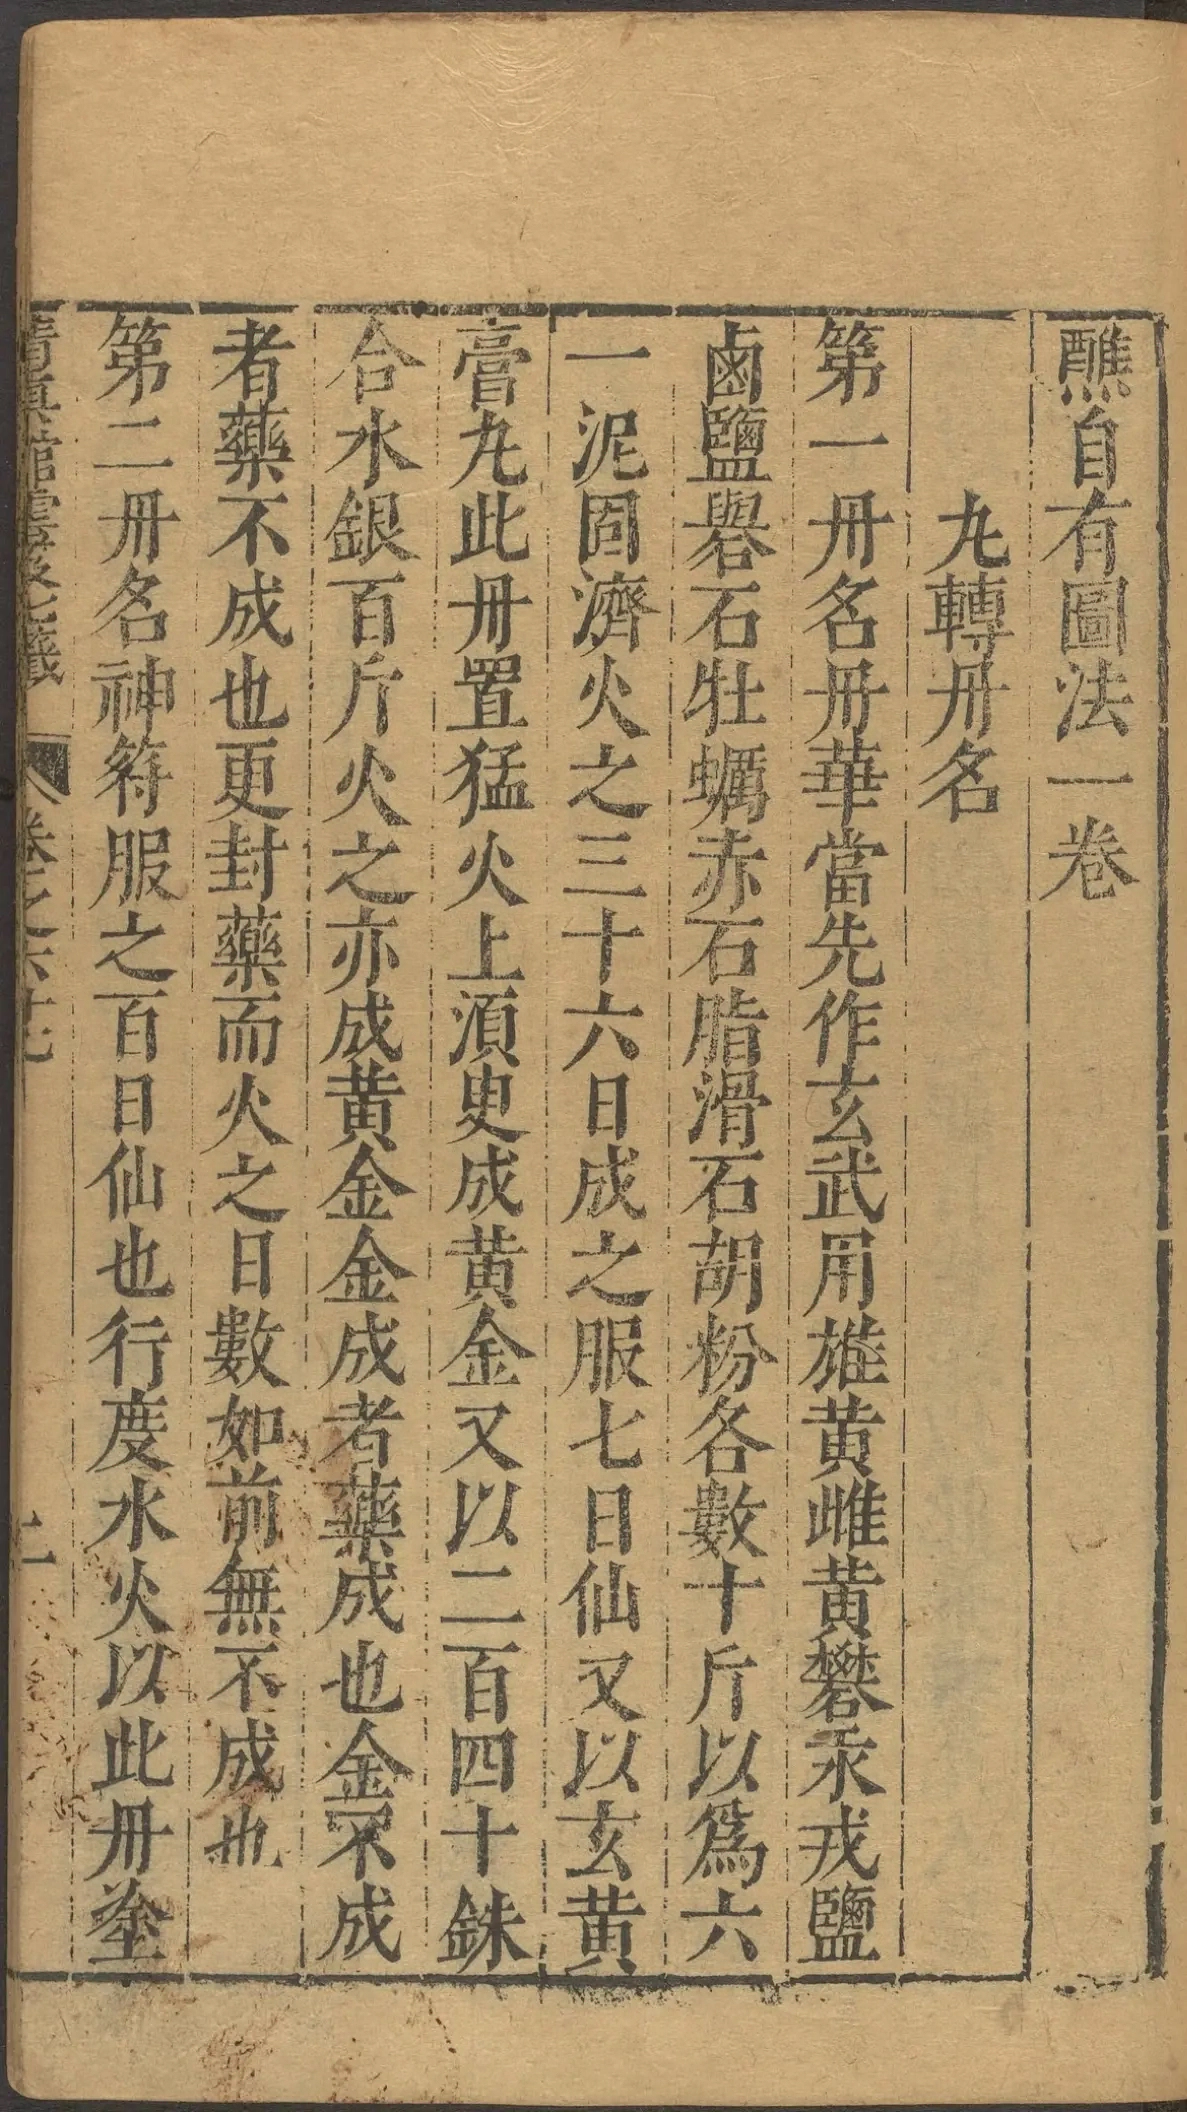 醮自有圖法一卷
九轉丹名
第一丹名丹華當先作玄武用雄黃雌黃礬汞戎鹽
鹵鹽礜石牡蠣赤石脂滑石胡粉各數十斤以爲六
一泥固濟火之三十六日成之服七日仙又以玄黃
膏丸此丹置猛火上湏臾成黃金又以二百四十銖
合水銀百斤火之亦成黃金金成者藥成也金不成
者藥不成也更封藥而火之日數如前無不成也
第二丹名神符服之百日仙也行度水火以此丹塗
清真館雲笈七籤
卷之六十七
二